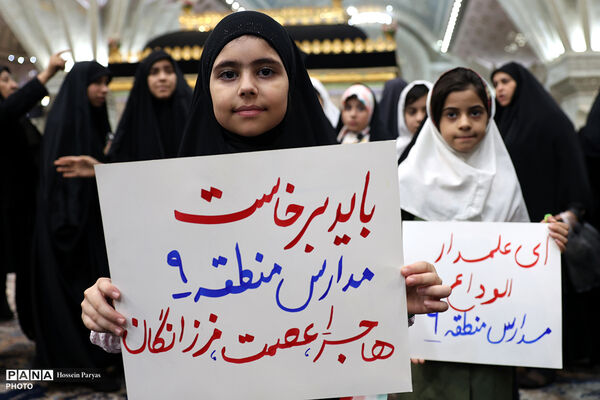 باید برخاست
مدارس منطقه ۹
هاجر۱، عصمت، فرزانگان
ای علمدار
الوداع
مدارس منطقه ۹
PANA
PHOTO
Hossein Paryas